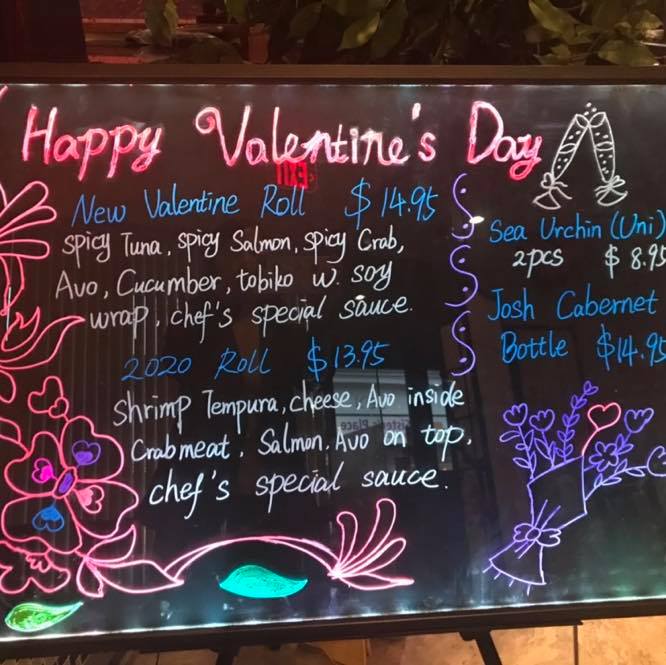 Happy Valentine's Day
New Valentine Roll $14.95
spicy Tuna, spicy Salmon, spicy Crab,
Avo, Cucumber, tobiko w. soy
wrap, chef's special sauce.
2020 Roll $13.95
shrimp Tempura, cheese, Avo inside
Crabmeat, Salmon, Avo on top,
chef's special sauce.
Sea Urchin (Uni)
2pcs $8.95
Josh Cabernet
Bottle $14.95
EXIT